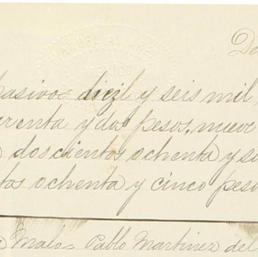 Do
pasivos diezl y seis mil
renta y dos pesos, nueve
doscientos ochenta y s
tos ochenta y cinco peso
Malo Pablo Martinez del